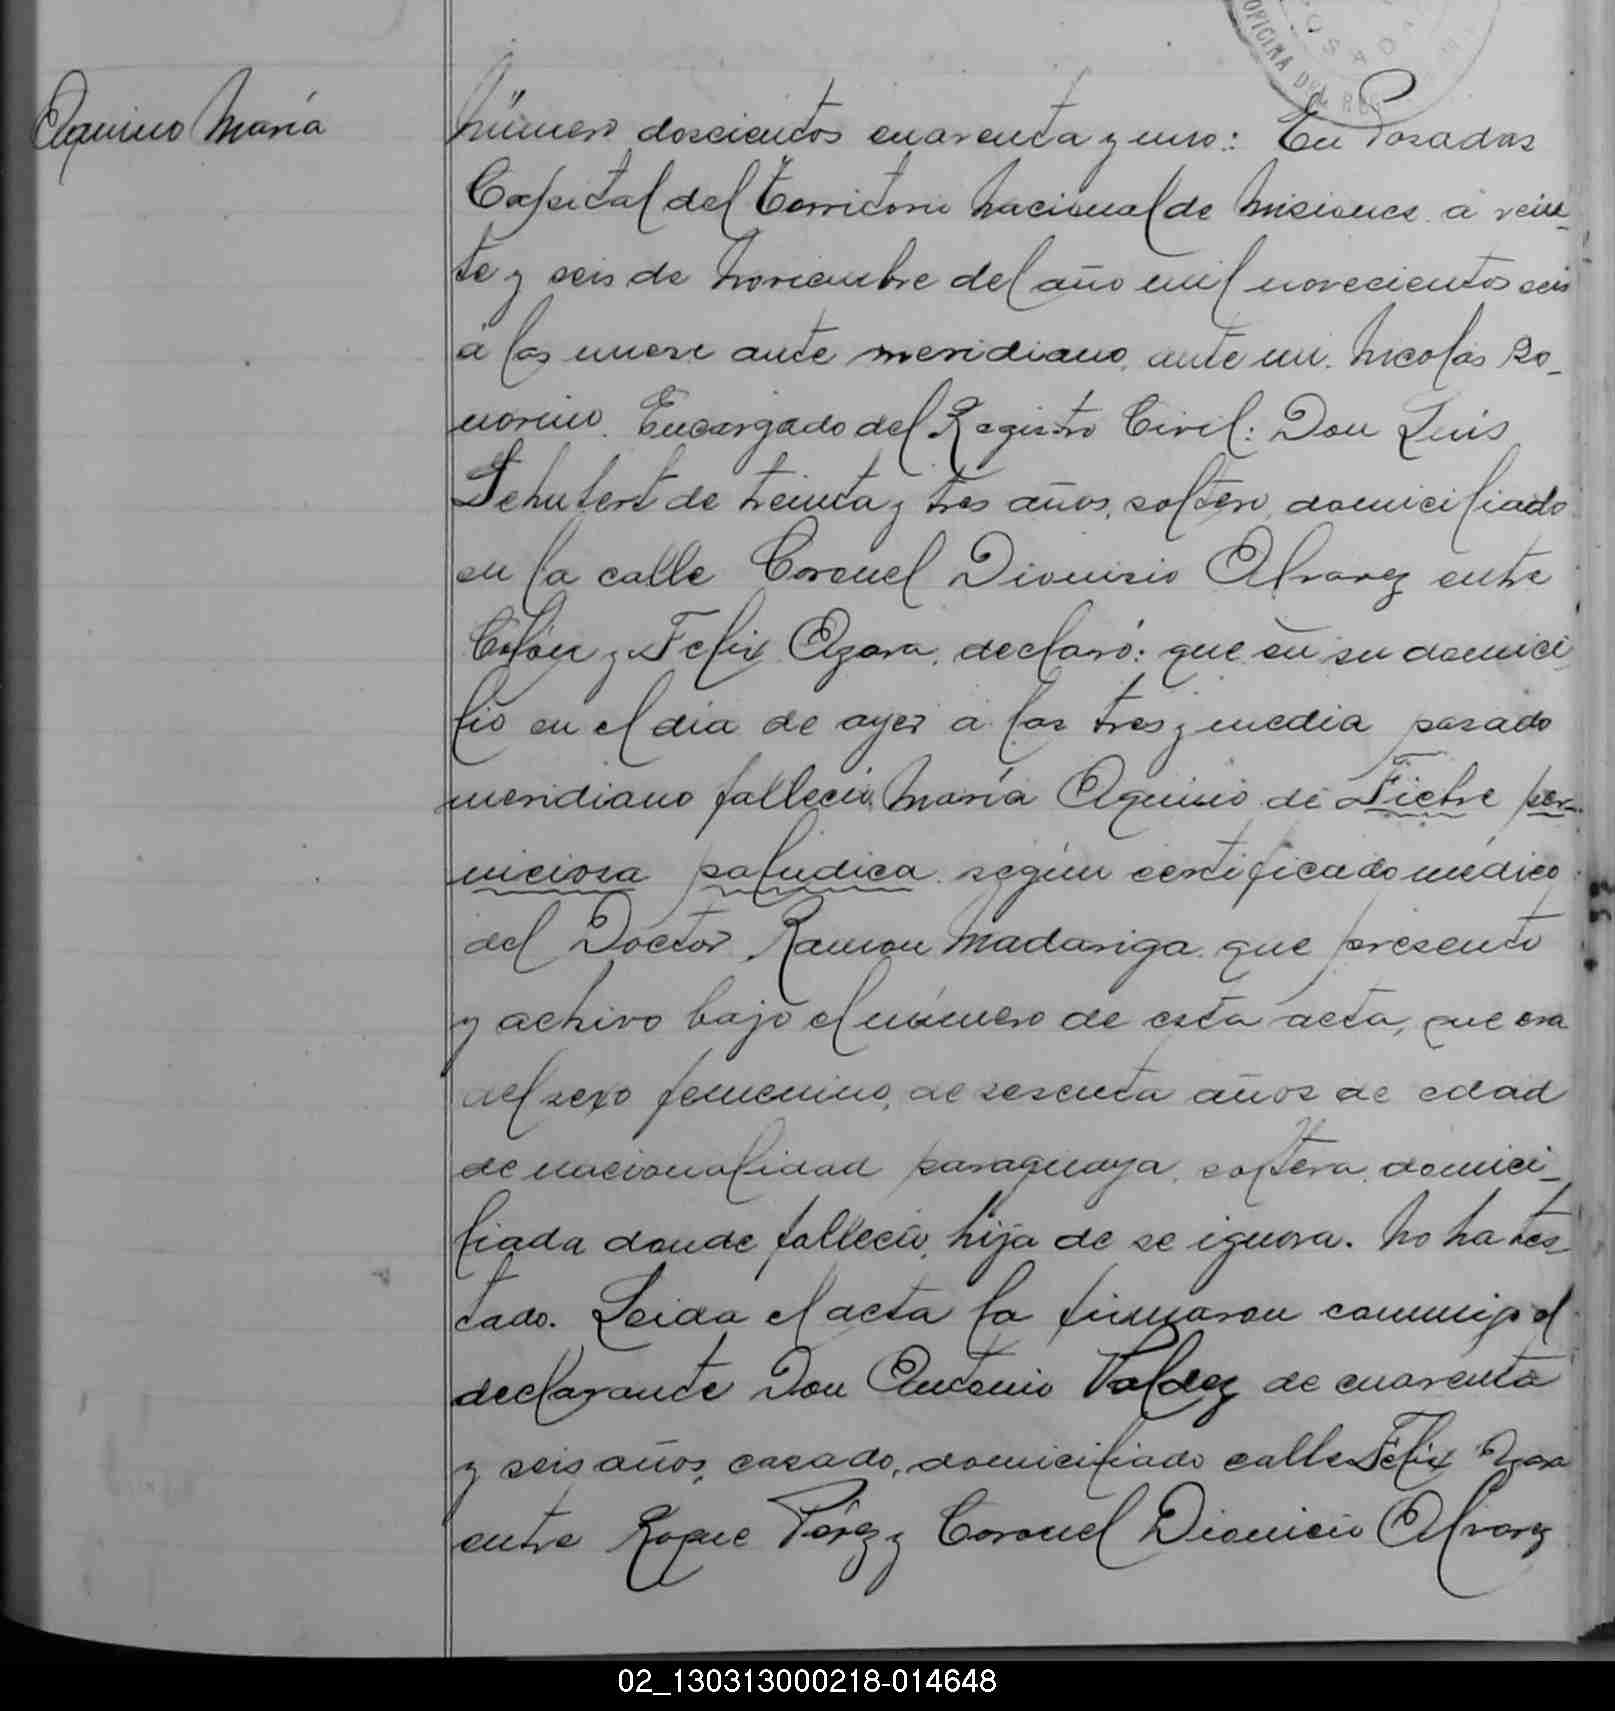 Aquino María
Número doscientos cuarenta y uno: En Posadas
Capital del Territorio Nacional de Misiones á vein-
te y seis de Noviembre del año mil novecientos seis
á las nueve ante meridiano, ante mi. Nicolás Ro-
norino. Encargado del Registro Civil: Don Luis
Schubert de treinta y tres años, soltero, domiciliado
en la calle Coronel Dionisio Alvarez entre
Colón y Felix Azara, declaró: que en su domici
lio en el dia de ayer á las tres y media pasado
meridiano falleció María Aquino de Fiebre per-
niciosa paludica según certificado médico
del Doctor Ramon Madariga que presento
y achivo bajo el número de esta acta, que era
del sexo femenino, de sesenta años de edad
de nacionalidad paraguaya, soltera, domici-
liada donde falleció, hija de se ignora. No ha tes-
tado. Leida el acta la firmaron conmigo el
declarante Don Antonio Valdez de cuarenta
y seis años, casado, domiciliado calle Félix Azara
entre Roque Pérez y Coronel Dionicio Alvarez
OFICINA DEL REG
POSADAS
02_130313000218-014648